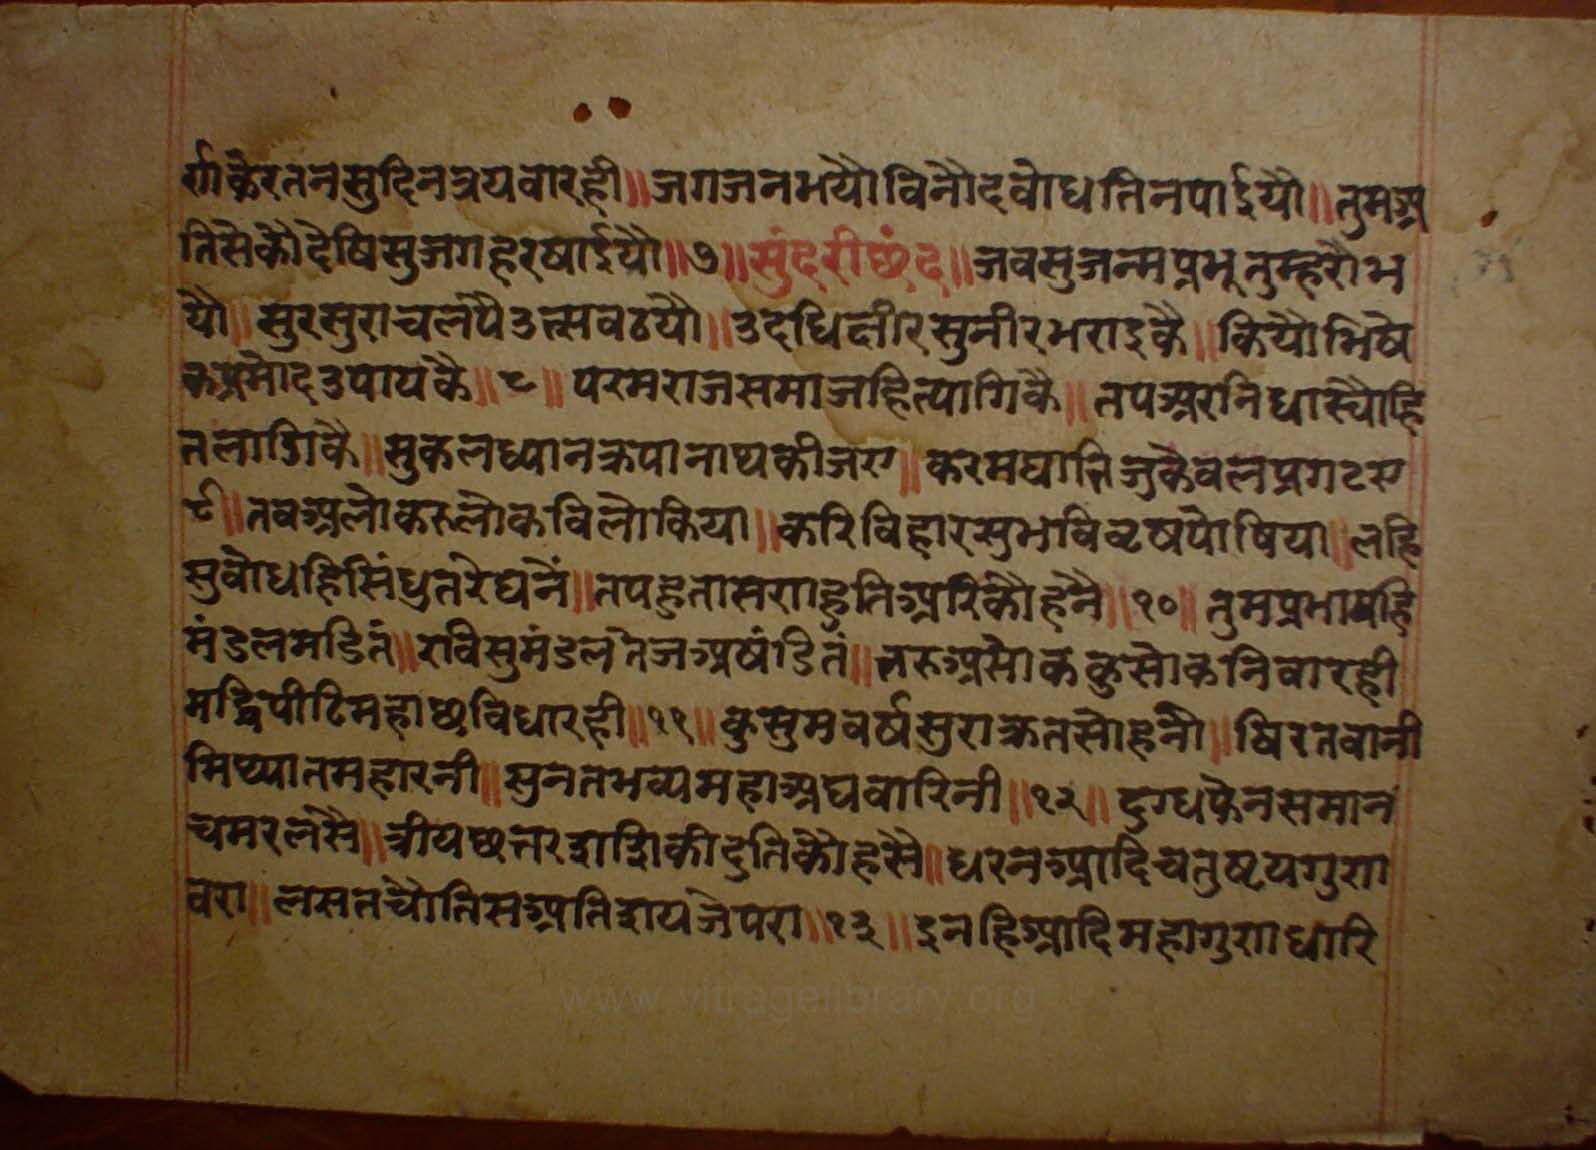 र्णाकेरतनसुदिनत्रयवारही॥जगजनभयौविनौदवोधतिनपाईयौ॥तुमअ
तिसेकौदेषिसुजगहरषाईयौ॥७॥सुंदरीछंद॥जवसुजन्मप्रभूतुम्हरौभ
यौ॥सुरसुराचलपैउत्सवठयौ॥उदधिक्षीरसुनीरभराइकै॥कियौभिषे
कप्रमोदउपायकै॥८॥परमराजसमाजहित्यागिकै॥तपअरनिधास्यौहि
तलागिकै॥सुकलध्यानक्रपानाथकीजए॥करमघातिजुकेवलप्रगटए
९॥तवअलोकरुलोकविलोकिया॥करिविहारसुभविवृषपोषिया॥लहि
सुवोधहिसिंधुतरेघनें॥तपहुतासणाहुतिअरिकौहनै॥१०॥तुमप्रभामहि
मंडलमडितं॥रविसुमंडलतेजअषंडितं॥तरुअसोककुसोकनिवारही
मद्धिपीठिमहाछविधारही॥११॥कुसुमवर्षसुराक्रतसोहनी॥षिरतवानी
मिथ्यातमहारनी॥सुनतभव्यमहाअघवारिनी॥१२॥दुग्धफेनसमान
चमरलसै॥त्रीयछत्तरशशिकीदुतिकौहसै॥धरनआदिचतुष्टयगुण
वरा॥लसतचौतिसअतिशयजेपरा॥१३॥इनहिआदिमहागुणधारि
www.vitragelibrary.org